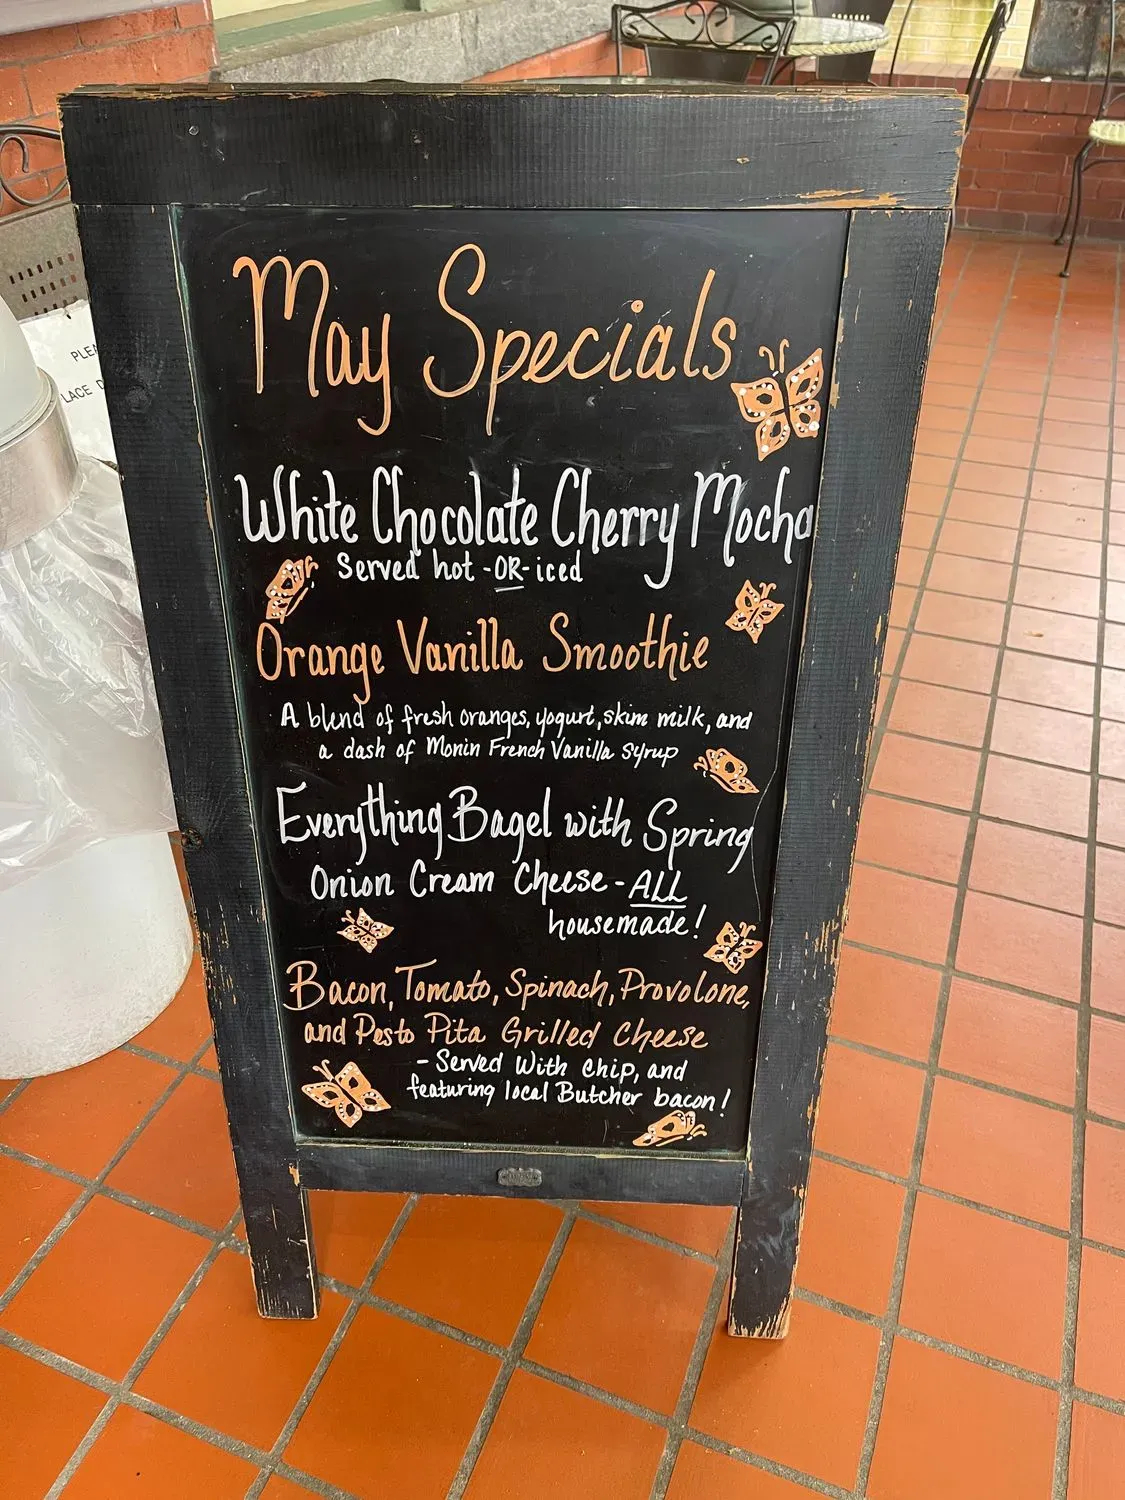 May Specials
White Chocolate Cherry Mocha
Served hot -OR- iced
Orange Vanilla Smoothie
A blend of fresh oranges, yogurt, skim milk, and
a dash of Monin French Vanilla syrup
Everything Bagel with Spring
Onion Cream Cheese - ALL
housemade!
Bacon, Tomato, Spinach, Provolone,
and Pesto Pita Grilled Cheese
- Served With chip, and
featuring local Butcher bacon!